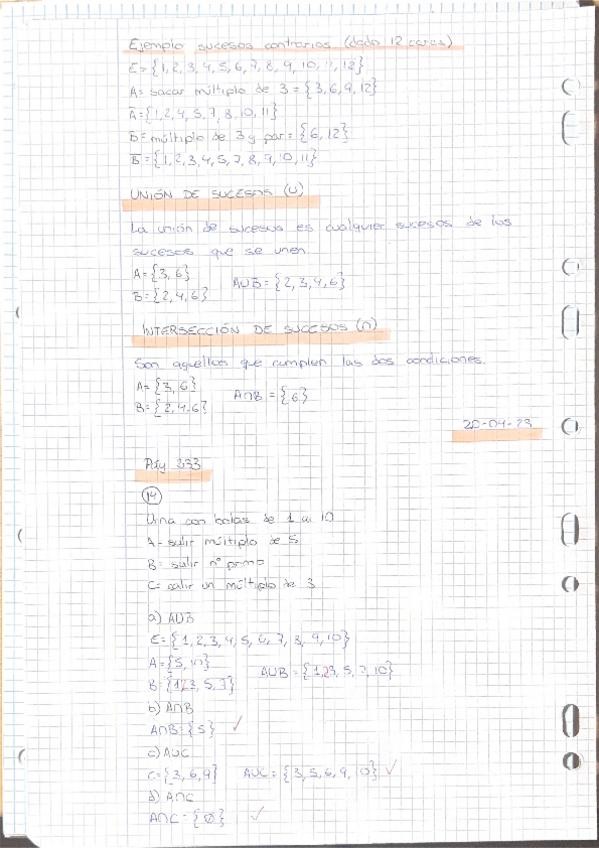 Ejemplo sucesos contrarios (dado 12 caras)
E = {1, 2, 3, 4, 5, 6, 7, 8, 9, 10, 11, 12}
A = sacar múltiplo de 3 = {3, 6, 9, 12}
A̅ = {1, 2, 4, 5, 7, 8, 10, 11}
B = múltiplo de 3 y par = {6, 12}
B̅ = {1, 2, 3, 4, 5, 7, 8, 9, 10, 11}
UNIÓN DE SUCESOS (U)
La unión de sucesos es cualquier sucesos de los
sucesos que se unen.
A = {3, 6}
B = {2, 4, 6} AUB = {2, 3, 4, 6}
INTERSECCIÓN DE SUCESOS (∩)
Son aquellos que cumplen las dos condiciones.
A = {3, 6}
B = {2, 4, 6} A∩B = {6}
20-04-23
Pág 233
14
Urna con bolas de 1 a 10
A = salir múltiplo de 5
B = salir nº primo
C = salir un múltiplo de 3
a) AUB
E = {1, 2, 3, 4, 5, 6, 7, 8, 9, 10}
A = {5, 10}
B = {1, 2, 3, 5, 7} AUB = {1, 2, 3, 5, 7, 10}
b) A∩B
A∩B = {5} ✓
c) AUC
C = {3, 6, 9} AUC = {3, 5, 6, 9, 10} ✓
d) A∩C
A∩C = {Ø} ✓